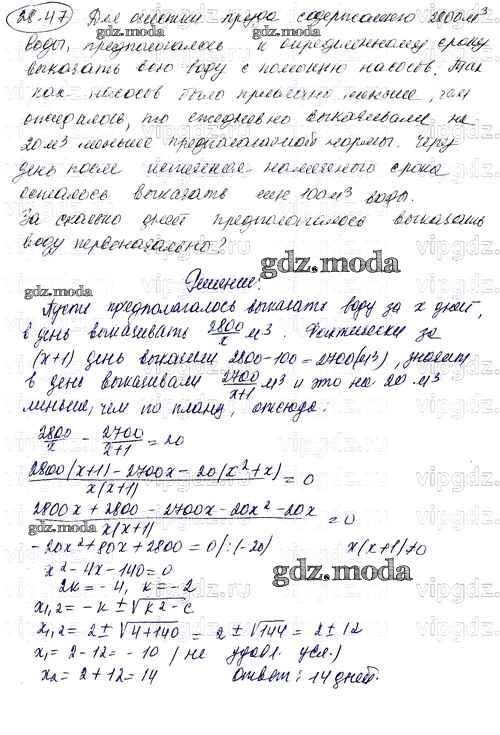 28.47 Для очистки пруда содержащего 2800 м³
воды, предполагалось к определенному сроку
выкачать всю воду с помощью насосов. Так
как насосов было привезено меньше, чем
ожидалось, то ежедневно выкачивали на
20 м³ меньше предполагаемой нормы. Через
день после истечения намеченного срока
осталось выкачать еще 100 м³ воды.
За сколько дней предполагалось выкачать
воду первоначально?
gdz.moda
Решение:
Пусть предполагалось выкачать воду за x дней,
в день выкачивать 2800/x м³. Фактически за
(x+1) день выкачали 2800-100=2700(м³), значит
в день выкачивали 2700/x+1 м³ и это на 20 м³
меньше, чем по плану, отсюда:
2800/x - 2700/x+1 = 20
2800(x+1) - 2700x - 20(x²+x) / x(x+1) = 0
2800x + 2800 - 2700x - 20x² - 20x / x(x+1) = 0
-20x² + 80x + 2800 = 0 /:(-20) x(x+1)≠0
x² - 4x - 140 = 0
2k = -4, k = -2
x₁,₂ = -k ± √k² - c
x₁,₂ = 2 ± √4+140 = 2 ± √144 = 2 ± 12
x₁ = 2 - 12 = -10 (не удовл. усл.)
x₂ = 2 + 12 = 14 ответ: 14 дней.